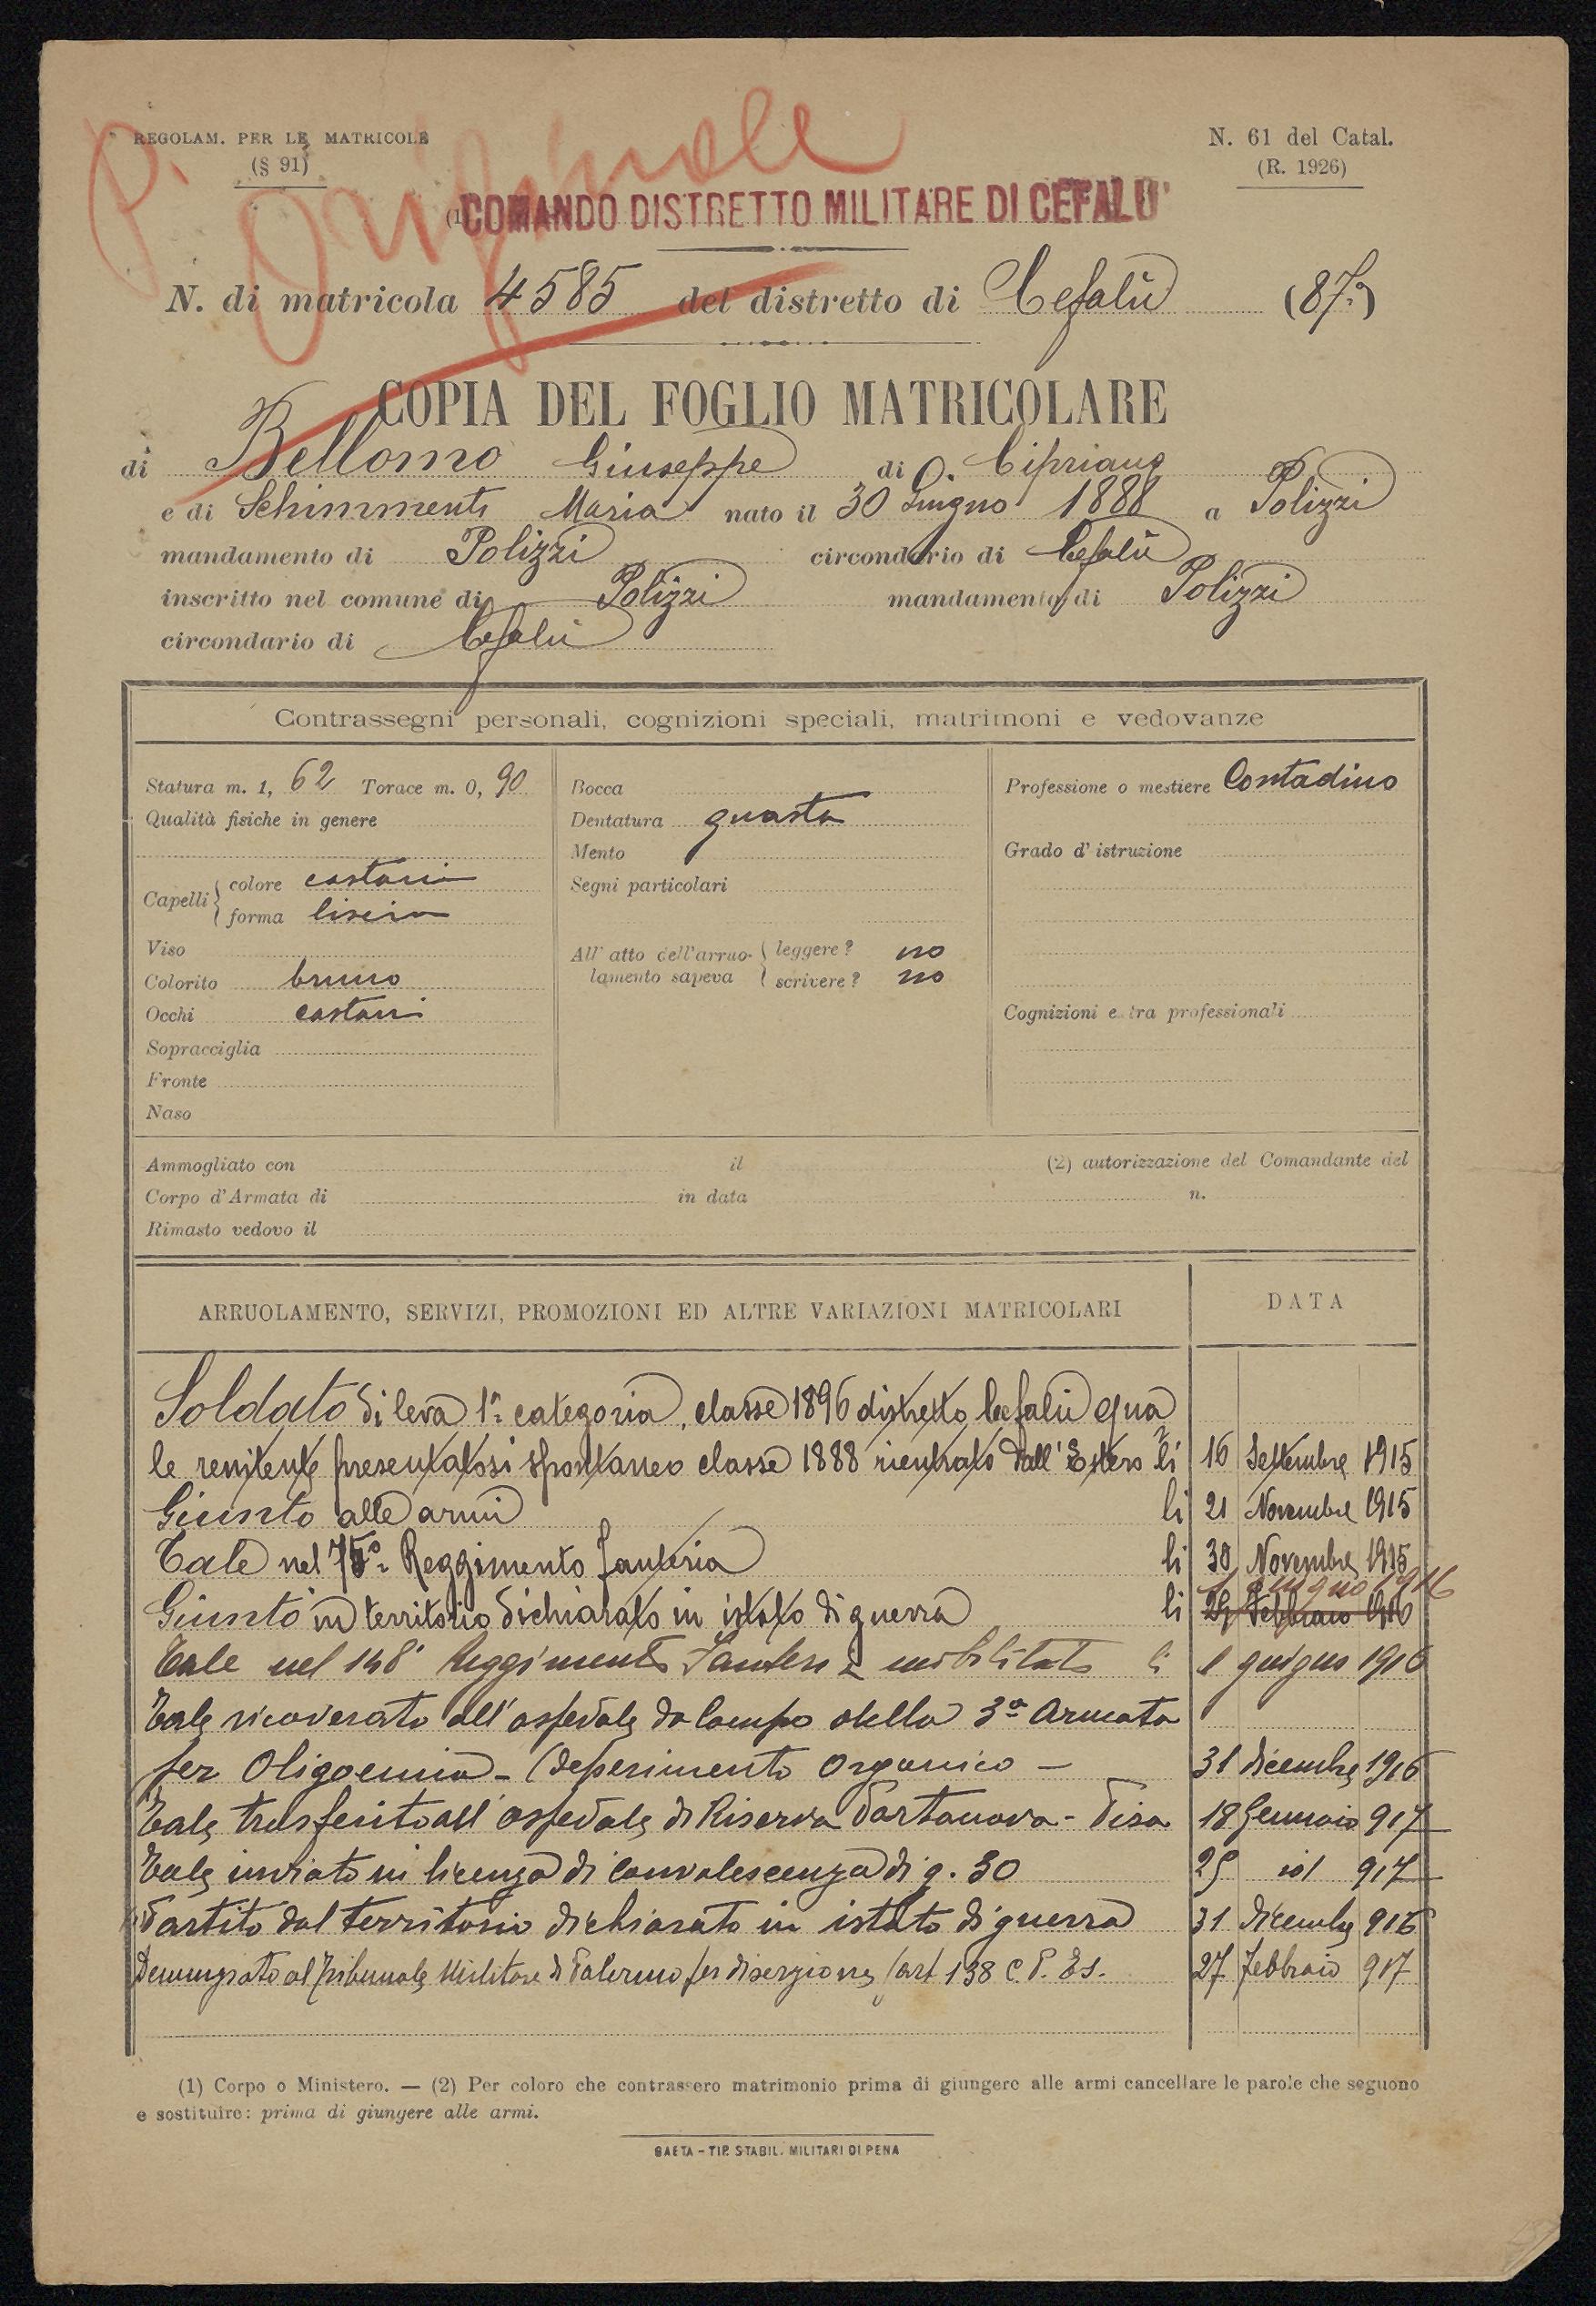 P. Originale
REGOLAM. PER LE MATRICOLE
(§ 91)
N. 61 del Catal.
(R. 1926)
(1) COMANDO DISTRETTO MILITARE DI CEFALU'
N. di matricola 4585 del distretto di Cefalù (87ª)
COPIA DEL FOGLIO MATRICOLARE
di Bellomo Giuseppe di Cipriano
e di Schimmenti Maria nato il 30 Giugno 1888 a Polizzi
mandamento di Polizzi circondario di Cefalù
inscritto nel comune di Polizzi mandamento di Polizzi
circondario di Cefalù
Contrassegni personali, cognizioni speciali, matrimoni e vedovanze
Statura m. 1, 62 Torace m. 0, 90
Qualità fisiche in genere
Capelli colore castani
forma liscia
Viso
Colorito bruno
Occhi castani
Sopracciglia
Fronte
Naso
Bocca
Dentatura guasta
Mento
Segni particolari
All' atto dell'arruo- leggere? no
lamento sapeva scrivere? no
Professione o mestiere Contadino
Grado d' istruzione
Cognizioni extra professionali
Ammogliato con il (2) autorizzazione del Comandante del
Corpo d'Armata di in data n.
Rimasto vedovo il
ARRUOLAMENTO, SERVIZI, PROMOZIONI ED ALTRE VARIAZIONI MATRICOLARI DATA
Soldato di leva 1ª categoria, classe 1896 distretto Cefalù qua
le renitente presentatosi spontaneo classe 1888 rientrato dall'Estero li 16 Settembre 1915
Giunto alle armi li 21 Novembre 1915
Tale nel 75° Reggimento Fanteria li 30 Novembre 1915
1 giugno 1916
Giunto in territorio dichiarato in istato di guerra li 29 Febbraio 1916
Tale nel 148° Reggimento Fanteria mobilitato li 1 giugno 1916
Tale ricoverato all'ospedale da Campo della 3ª Armata
per Oligoemia - (Deperimento Organico - 31 dicembre 1916
Tale trasferito all'ospedale di Riserva Portanova - Pisa 18 Gennaio 917
Tale inviato in licenza di Convalescenza di g. 30 25 id 917
Partito dal territorio dichiarato in istato di guerra 31 dicembre 916
Denunziato al Tribunale Militare di Palermo per diserzione (art 138 C. P. Es. 27 Febbraio 917
(1) Corpo o Ministero. — (2) Per coloro che contrassero matrimonio prima di giungere alle armi cancellare le parole che seguono
e sostituire: prima di giungere alle armi.
GAETA - TIP. STABIL. MILITARI DI PENA